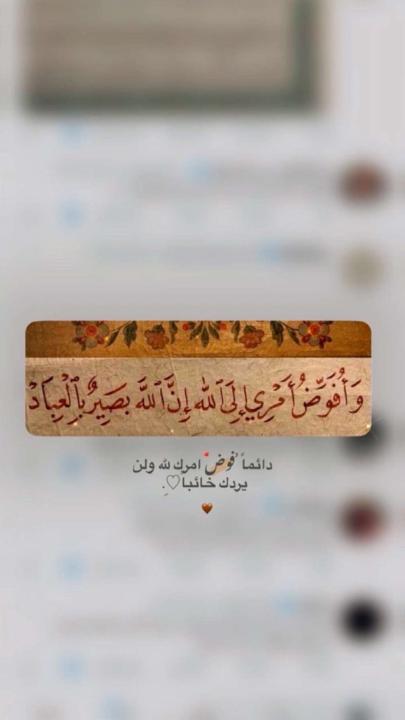 وَأُفَوِّضُ أَمْرِي إِلَى ٱللَّهِ إِنَّ ٱللَّهَ بَصِيرٌ بِٱلْعِبَادِ
دائماً فوض امرك لله ولن
يردك خائباً♡.